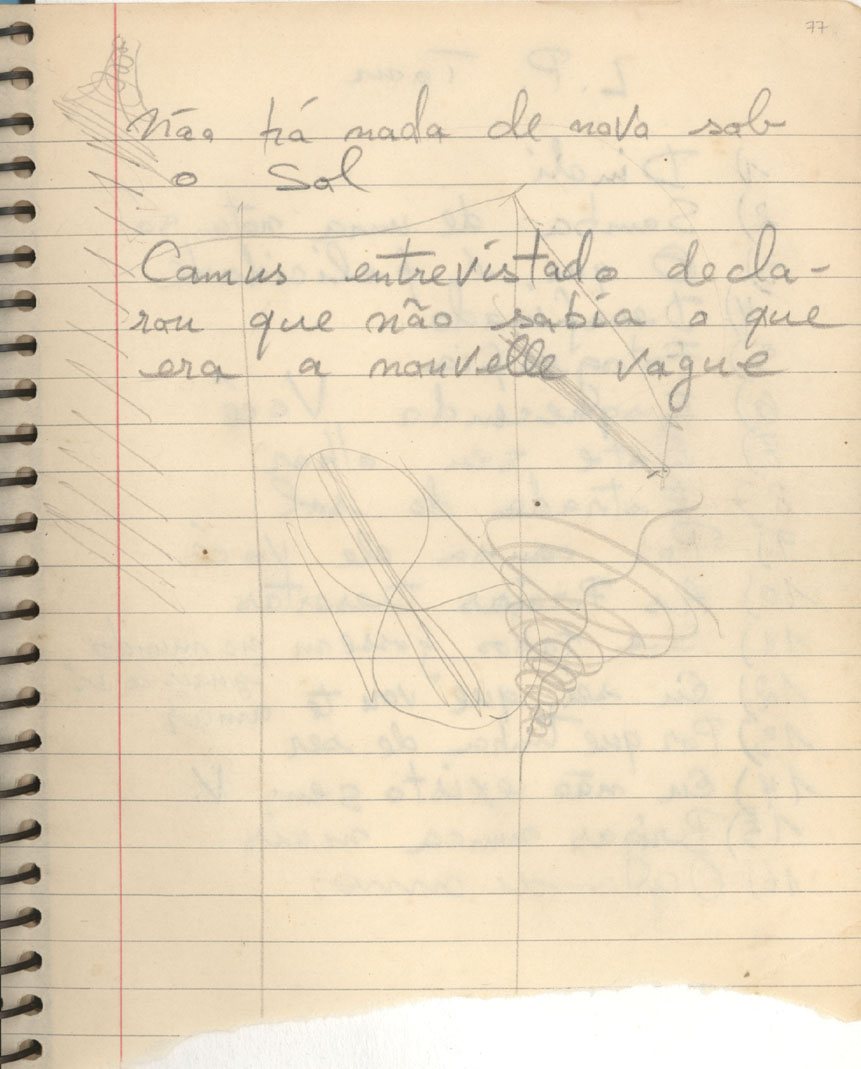 77
Não há nada de novo sob
o Sol
Camus entrevistado decla-
rou que não sabia o que
era a nouvelle vague